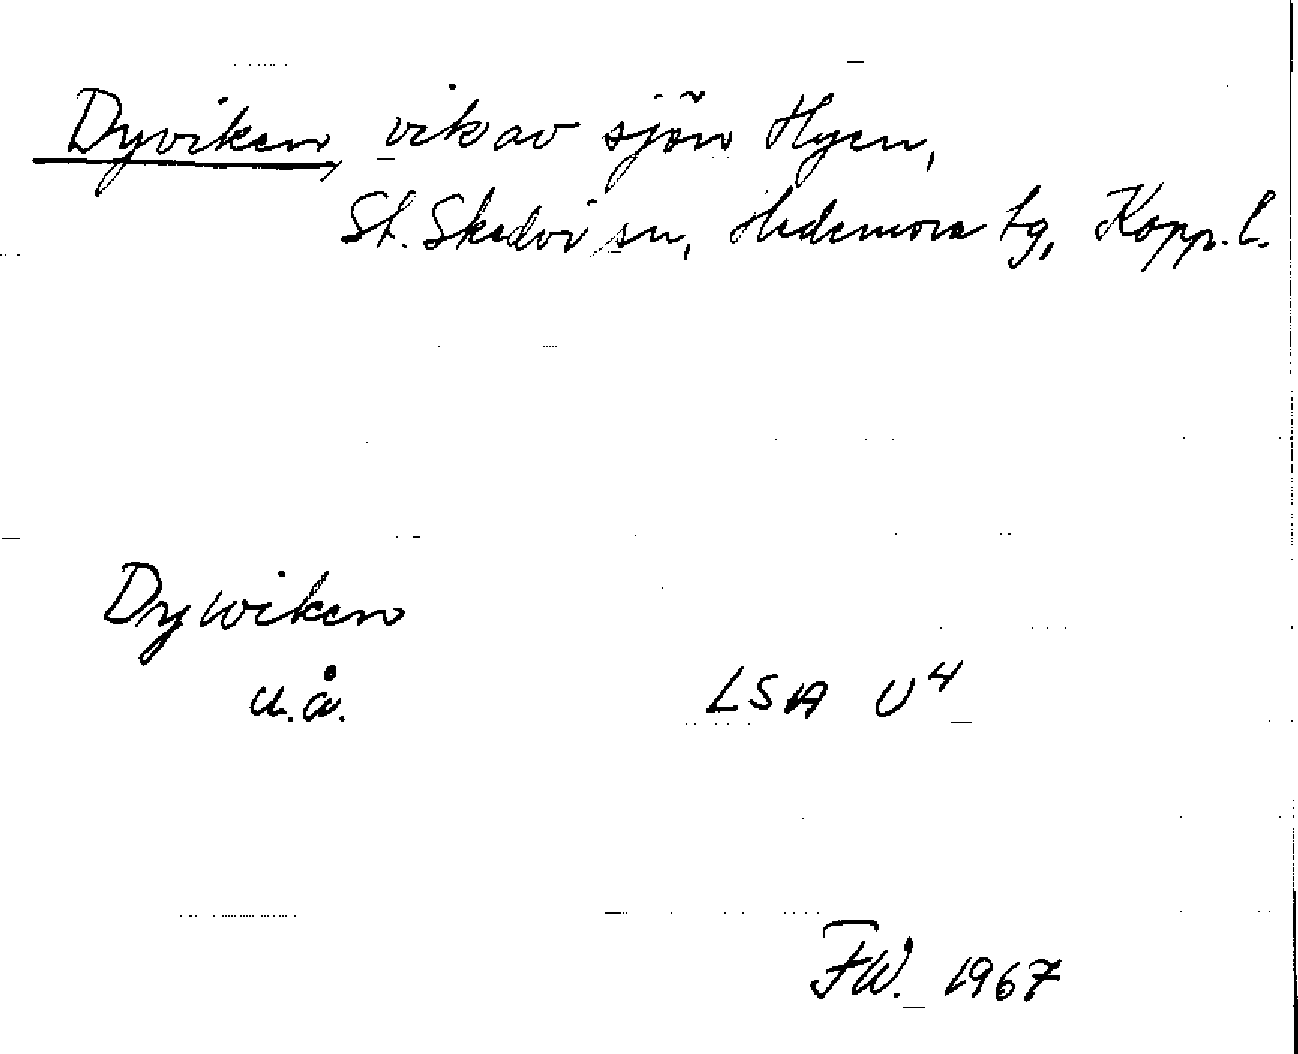 Dyviken, vik av sjön Hyen,
St. Skedvi sn, Hedemora tg, Kopp. l.
Dywiken
u.å. LSA U4
FW. 1967